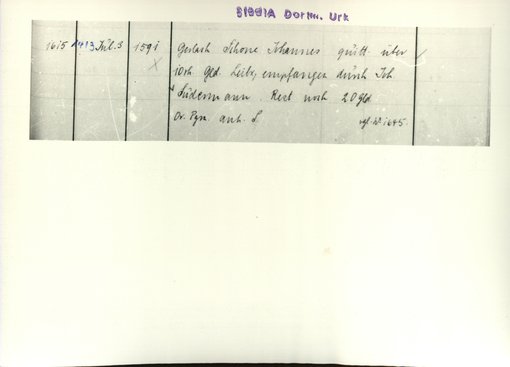 Dortm. Urk
1615 1413 Jul. 3 1591 Gerlach Schone Johannes quitt. über
10rh. Gld. Leibz. empfangen durch Joh.
Südermann. Rest noch 20 Gld
Or. Pgm. anh. S. vgl. № 1645